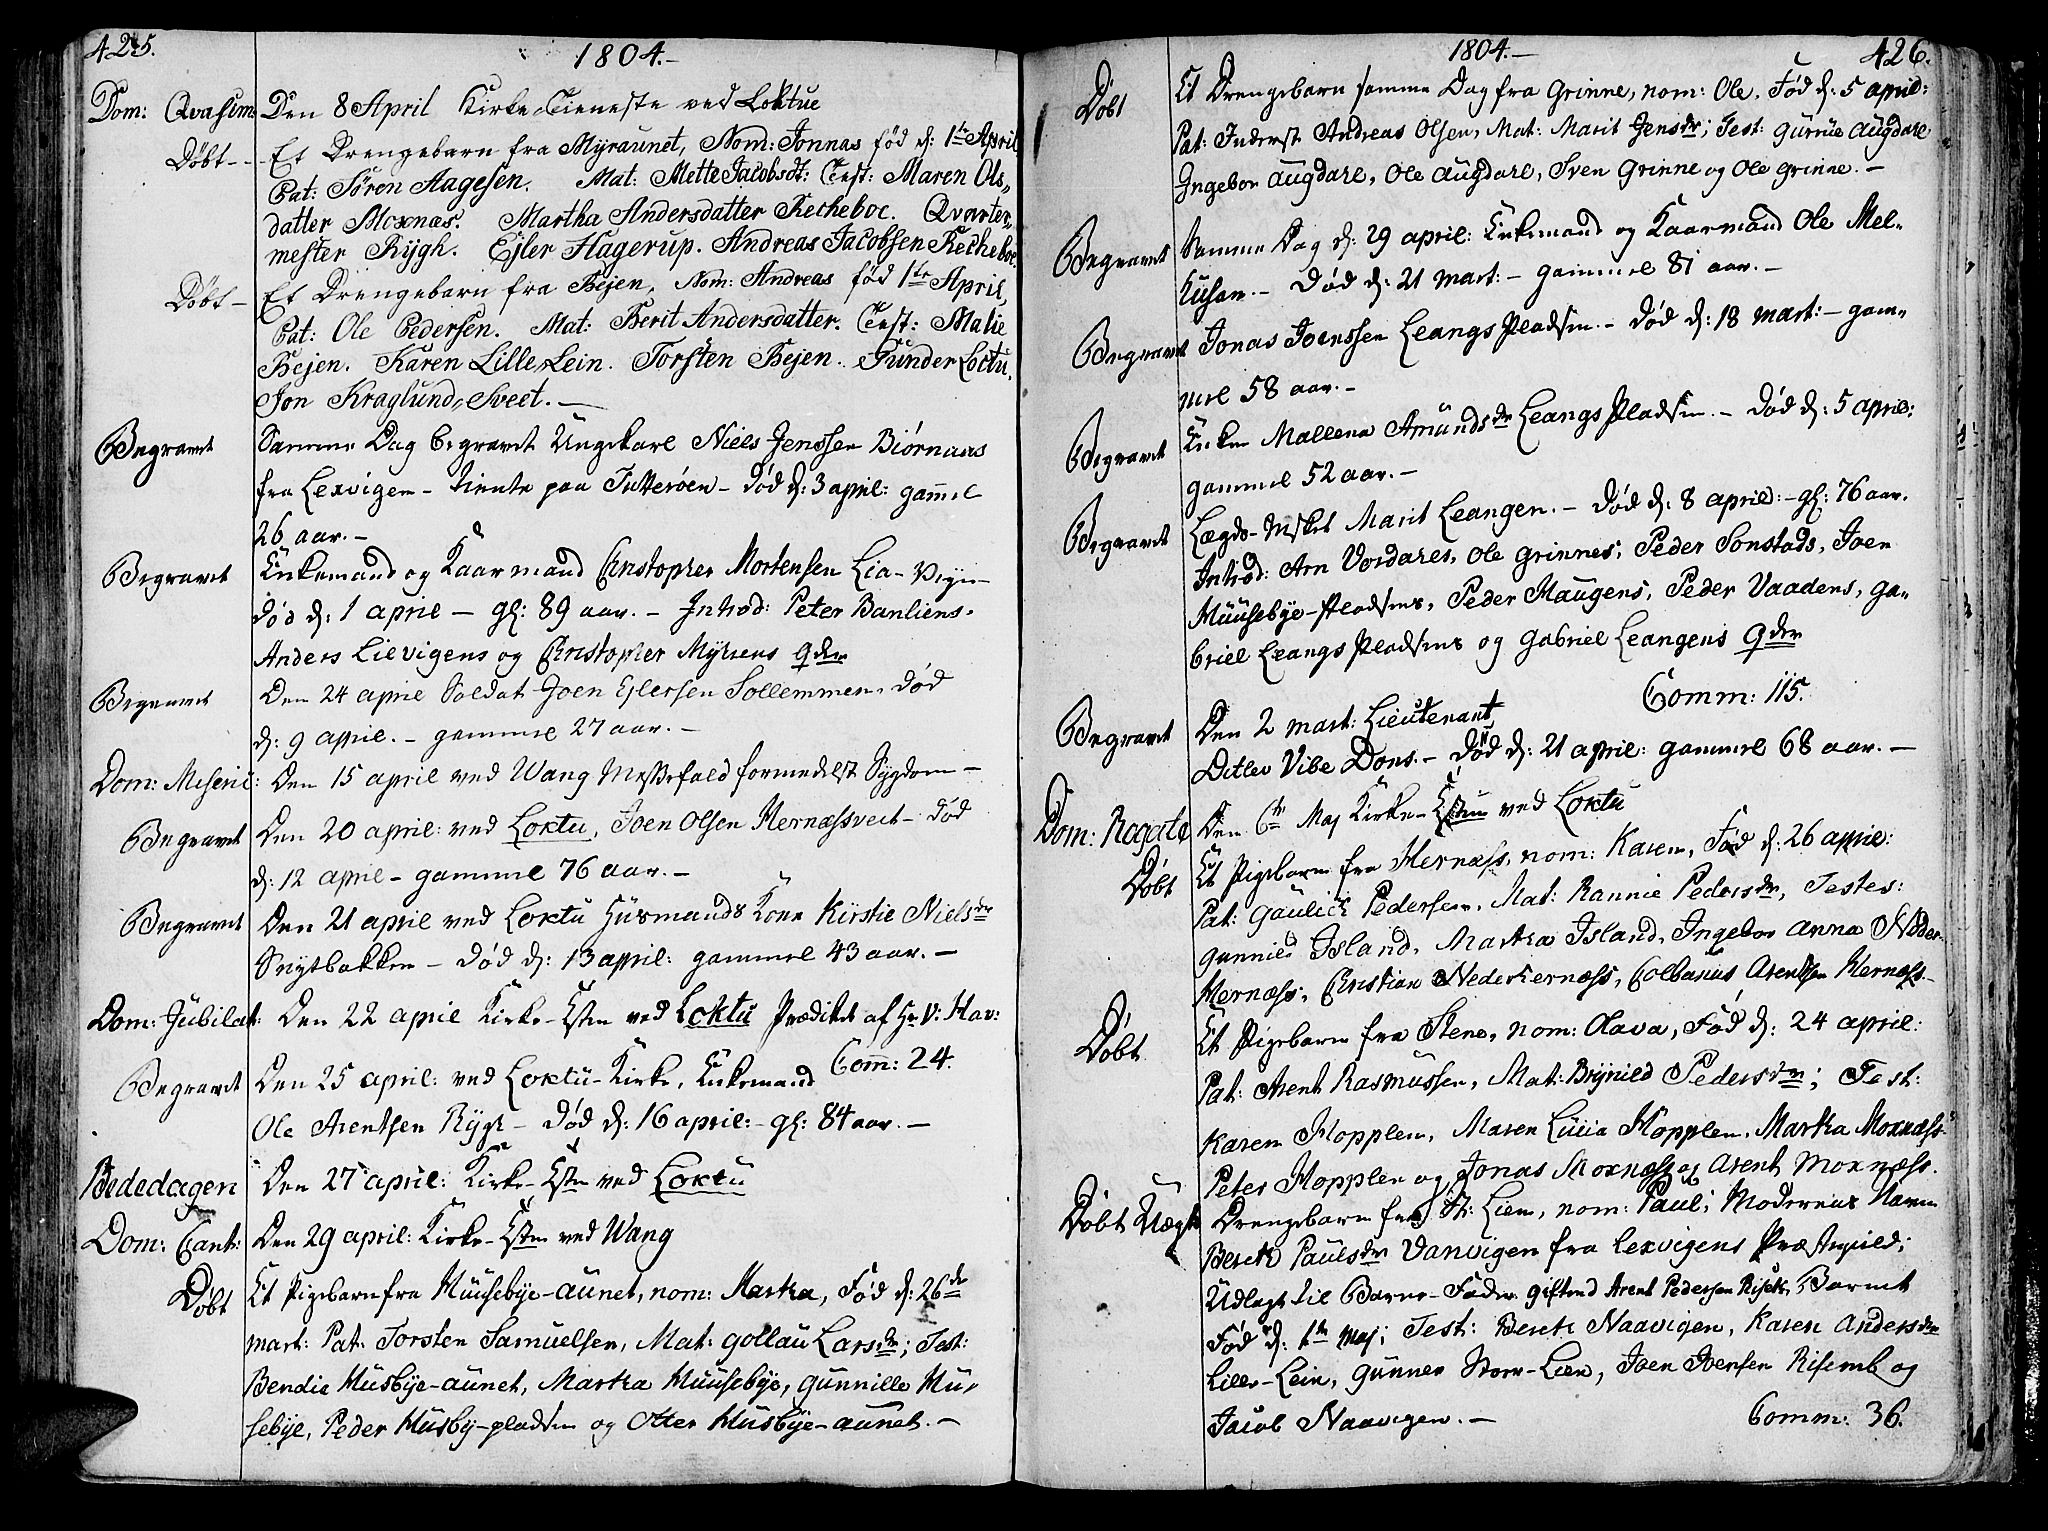 425.
1804.-
Dom: Qvasim: Den 8 April Kirke-Tieneste ved Loktue
Døbt - - Et Drengebarn fra Myraunet, Nom: Jonnas fød d: 1te April
Pat: Søren Aagesen. Mat: Mette Jacobsdt: Test: Maren Ols,,
datter Moxnæs. Martha Andersdatter Recheboe. Qvarter,,
mester Rygh. Ejler Hagerup. Andreas Jacobsen Recheboe.
Døbt - Et Drengebarn fra Bejen, Nom: Andreas fød 1te April,
Pat: Ole Pedersen. Mat: Berit Andersdatter. Test: Malie
Bejen. Karen Lille Lein. Torsten Bejen. Gunder Loctu.
Jon Kraglund,, Sveet. -
Begravet Samme Dag begravet Ungekarl Niels Jenssen Biørnaas
fra Lexvigen - tiente paa Tutterøen - død d: 3 april: gam̄el
26 aar. -
Begravet Enkemand og Kaarmand Christopher Mortensen Lia-
død d: 1 april - gl: 89 aar. - Introd: Peter Banliens.
Anders Lievigens og Christopher Myhrens Qder
Begravet Den 24 april Soldat Joen Ejlersen Sollemmen. død
d: 9 april. - gammel 27 aar. -
Dom: Miseric: Den 15 april ved Wang Messefald formedelst Sygdom -
Begravet Den 20 april: ved Loktu, Joen Olsen Hernæssveet - død
d: 12 april - gammel 76 aar. -
Begravet Den 21 april ved Loktu Husmands Kone Kirstie Nielsdr
Snytbakken - død d: 13 april: gammel 43 aar. -
Dom: Jubilat: Den 22 april Kirke-Tstn ved Loktu Prædiket af Hr V: Hav:
Com̄: 24.
Begravet Den 25 april: ved Loktu-Kirke, Enkemand
Ole Arentsen Rygh - død d: 16 april: - gl: 84 aar. -
Bededagen Den 27 april: Kirke-Tstn ved Loktu
Dom: Cant: Den 29 april: Kirke-Tstn ved Wang
Døbt Et Pigebarn fra Muusebye-aunet, nom: Martha, Fød d: 26de
mart: Pat: Torsten Samuelsen, Mat: Gollau Larsdr; Test:
Bendia Musbye-aunet, Martha Muusebye, Gunnille Mu,,
sebye, Peder Musby-pladsen og Otter Musbye-aunet. -
1804.-
426.
Døbt Et Drengebarn samme Dag fra Grinne, nom: Ole. Fød d: 5 april:
Pat: Inderst Andreas Olsen, Mat: Marit Jensdr; Test: Gurrue Augdahl
Ingebor Augdahl, Ole Augdahl, Sven Grinne og Ole Grinne. -
Begravet Samme Dag d: 29 april: Enkemand og Kaarmand Ole Mel,,
husen. - Død d: 21 mart: - gammel 81 aar. -
Begravet Jonas Joenssen Leangs Pladsen. - død d: 18 mart: - gam,,
mel 58 aar. -
Begravet Enken Mallena Amundsdr Leangs Pladsen. - død d: 5 april:
gammel 52 aar. -
Begravet Lægds- Marit Leangen. - død d: 8 april: - gl: 76 aar.
Introd: Arn Vordahls, Ole Grinnes, Peder Sonstads, Joen
Muusebye-pladsens, Peder Haugens, Peder Vaadens, Ga,,
briel Leangs Pladsens og Gabriel Leangens Qder
Comm: 115.
Begravet Den 2 mart: Lieutenant
Ditlev Vibe Dons. - død d: 21 april: gammel 68 aar. -
Dom: Rogate Den 6te Maj Kirke-Tstn ved Loktu
Døbt Et Pigebarn fra Hernæss, nom: Karen, Fød d: 26 april:
Pat: Gaulich Pedersen, Mat: Rannie Pedersdr, Testes:
Gunnild Island, Martha Island, Ingebor Anna Neder-
Hernæss, Christian Nederhernæss, Colbanus Arentsen Hernæss-
Døbt Et Pigebarn fra Stene, nom: Olava, Fød d: 24 april:
Pat: Arent Rasmussen, Mat: Brynild Pedersdr; Test:
Karen Hopplen, Maren Lucia Hopplen, Martha Moxnæss
Peter Hopplen og Jonas Moxnæss og Arent Moxnæss.
Døbt Uægte Drengebarn fra St: Lien, nom: Paul; Moderens Navn
Bereth Paulsdr Vanvigen fra Lexvigens Præstegield;
Udlagt til Barne-Fader gifte Arent Pedersen , Barnet
Fød d: 1te Maj; Test: Bereth Naavigen, Karen Andersdr
Lille-Lein, Gunner Store-Lein, Joen Joensen og
Jacob Naavigen. -
Comm: 36.